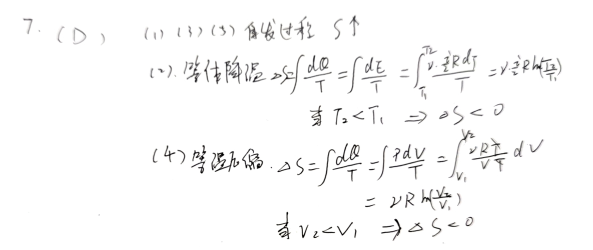 7. (D) (1) (3) (5) 自发过程 S↑
(2). 等体降温 ΔS=∫dQ/T = ∫dE/T = ∫_{T₁}^{T₂} ν·i/2 R dT/T = ν·i/2 R ln(T₂/T₁)
当 T₂<T₁ ⇒ ΔS<0
(4) 等温压缩. ΔS=∫dQ/T=∫PdV/T = ∫_{V₁}^{V₂} νRT/VT dV
= νR ln(V₂/V₁)
当 V₂<V₁ ⇒ ΔS<0